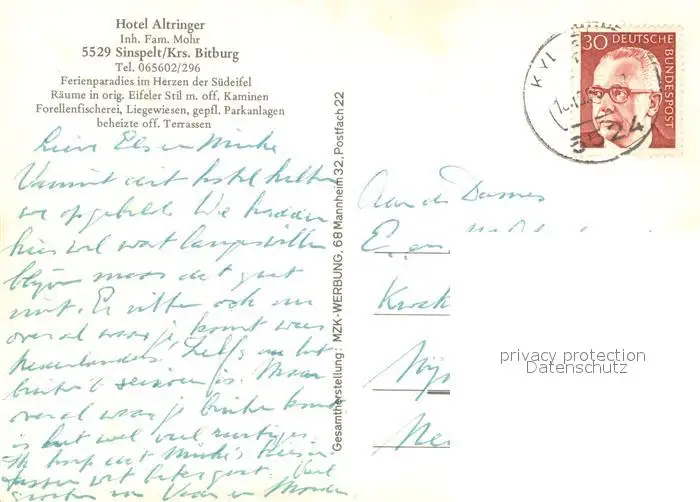 Hotel Altringer
Inh. Fam. Mohr
5529 Sinspelt/Krs. Bitburg
Tel. 065602/296
Ferienparadies im Herzen der Südeifel
Räume in orig. Eifeler Stil m. off. Kaminen
Forellenfischerei, Liegewiesen, gepfl. Parkanlagen
beheizte off. Terrassen
Lieve Els en Mieke
Vanuit dit hotel hebben
we opgebeld. We hadden
hier wel wat langer willen
blijven maar dat gaat
niet. Er zitten ook nu
overal waar je komt weer
Nederlanders! Zelfs nu het
buiten 't seizoen is. Maar
overal waar je buiten komt
is het wel veel rustiger.
Ik hoop dat Mieke's
wat beter gaat. Veel
groeten van Vader en Moeder
Gesamtherstellung: MZK-WERBUNG, 68 Mannheim 32, Postfach 22
30 DEUTSCHE
BUNDESPOST
KYL
5524
Aan de Dames
E. en
Nij
Ne
privacy protection
Datenschutz